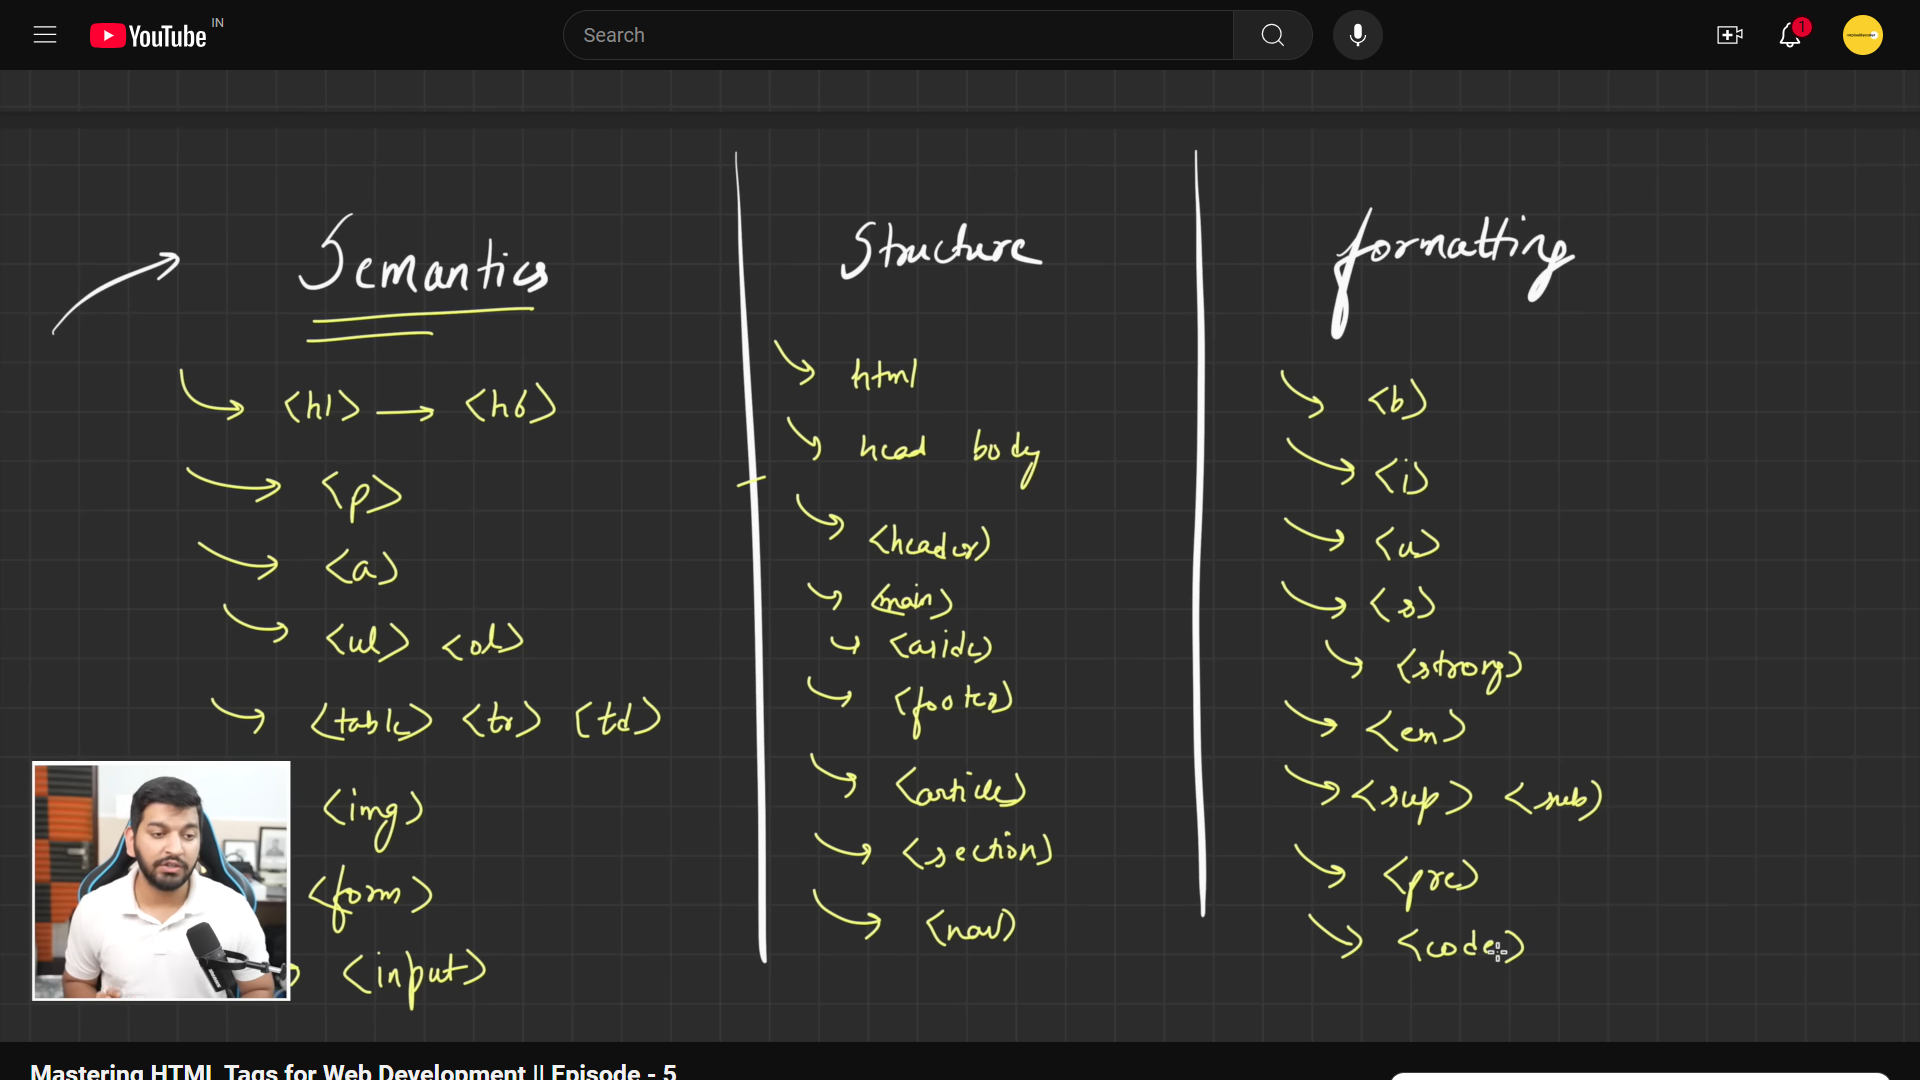 YouTube IN
Search
1
Semantics
<h1> → <h6>
<p>
<a>
<ul> <ol>
<table> <tr> <td>
<img>
<form>
<input>
Structure
html
head body
<header>
<main>
<aside>
<footer>
<article>
<section>
<nav>
formatting
<b>
<i>
<u>
<s>
<strong>
<em>
<sup> <sub>
<pre>
<code>
Mastering HTML Tags for Web Development || Episode - 5